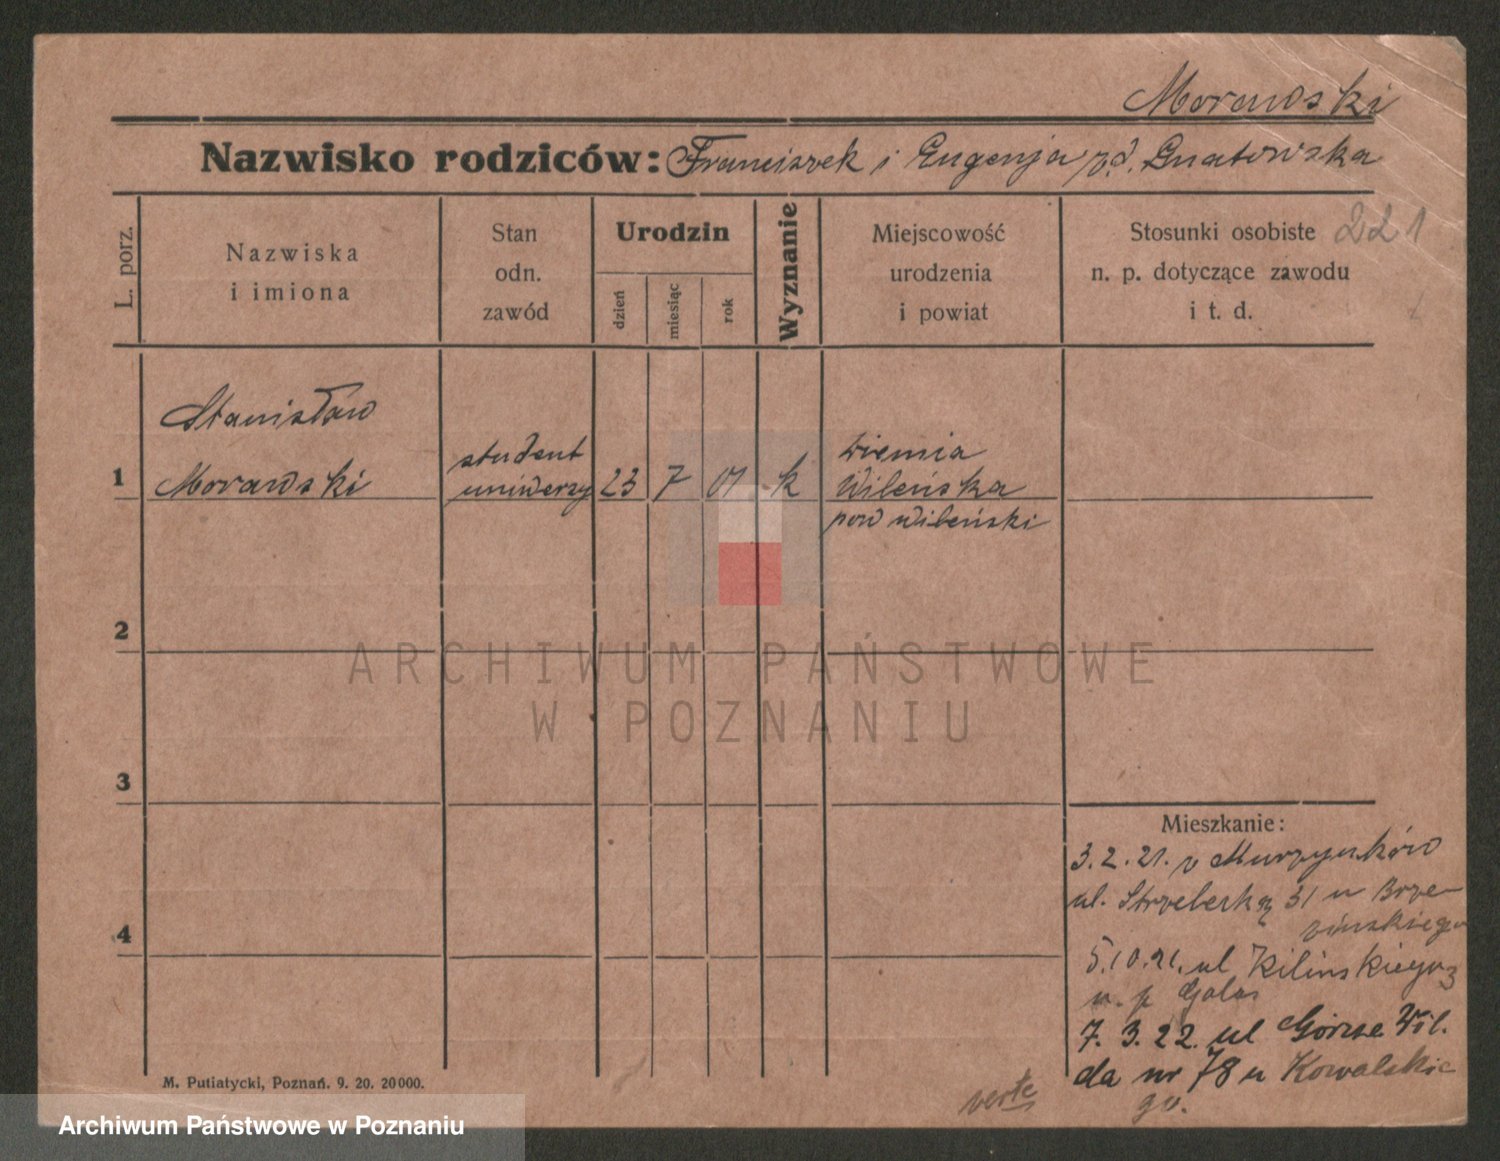 Morawski
Nazwisko rodziców: Franciszek i Eugenja z.d. Gnatowska
L. porz.
Nazwiska
i imiona
Stan
odn.
zawód
Urodzin
dzień
miesiąc
rok
Wyznanie
Miejscowość
urodzenia
i powiat
Stosunki osobiste
n. p. dotyczące zawodu
i t. d.
221
Stanisław
1 Morawski
student
uniwerzy
23 7 01 k
ziemia
Wileńska
pow wileński
2
ARCHIWUM PAŃSTWOWE
W POZNANIU
3
4
Mieszkanie:
3.2.21. z Murzynków
ul. Strzelecką 31 u Brze-
zińskiego
5.10.21. ul Kilinskiego 3
u. p Galas
7. 3. 22. ul Górne Wil.
da nr 78 u Kowalskie
go.
verte
M. Putiatycki, Poznań. 9. 20. 20000.
Archiwum Państwowe w Poznaniu